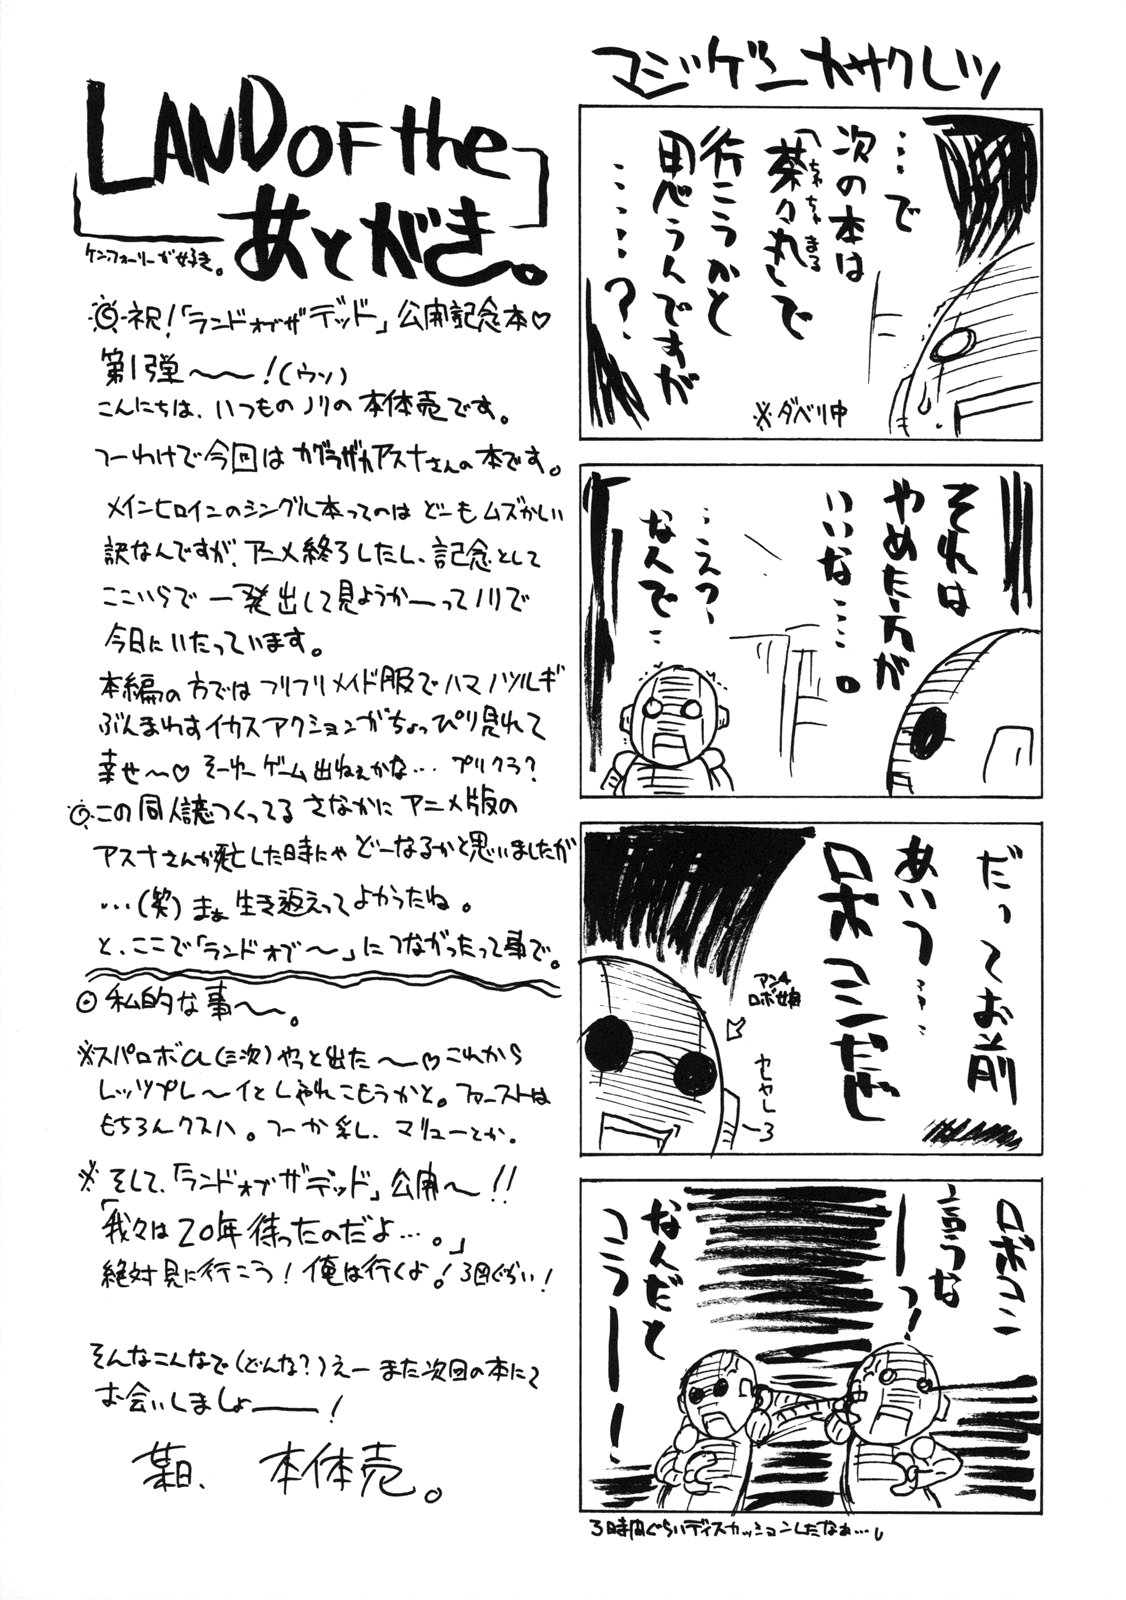 LAND OF the
あとがき。
ケン・フォーリーが好き。
◎祝!「ランドオブザデッド」公開記念本♡
第1弾〜〜!(ウソ)
こんにちは、いつものノリの本体売です。
つーわけで今回はカグラザカアスナさんの本です。
メインヒロインのシングル本ってのはどーもムズかしい
訳なんですが、アニメ終了したし、記念として
ここいらで一発出して見ようかーってノリで
今日にいたっています。
本編の方ではフリフリメイド服でハマノツルギ
ぶんまわすイカスアクションがちょっぴり見れて
幸せ〜♡そーゆーゲーム出ねぇかな…プリクラ?
◎この同人誌つくってるさなかにアニメ版の
アスナさんが死亡した時にゃどーなるかと思いましたが
…(笑)まぁ生き返えってよかったね。
と、ここで「ランドオブ〜」につながったって事で。
◎私的な事〜。
※スパロボα(三次)やっと出た〜♡これから
レッツプレ〜イとしゃれこもうかと。ファーストは
もちろんクスハ。つーか乳、マリューとか。
※そして、「ランドオブザデッド」公開〜!!
「我々は20年待ったのだよ…。」
絶対見に行こう!俺は行くよ!3回ぐらい!
そんなこんなで(どんな?)えーまた次回の本にて
お会いしましょーー!
某日、本体売。
マジゲンカサクレツ
…で
次の本は
「茶々丸」で
ちゃちゃまる
行こうかと
思うんですが
……?
※ダベリ中
それは
やめた方が
いいな…。
…えっ、
なんで…
だってお前
あいつ……
ロボコンだぜ
アンチ
ロボ娘
ロボコン
言うな
ーーっ!
なんだと
コラーー!
3時間ぐらいディスカッションしたなぁ…。